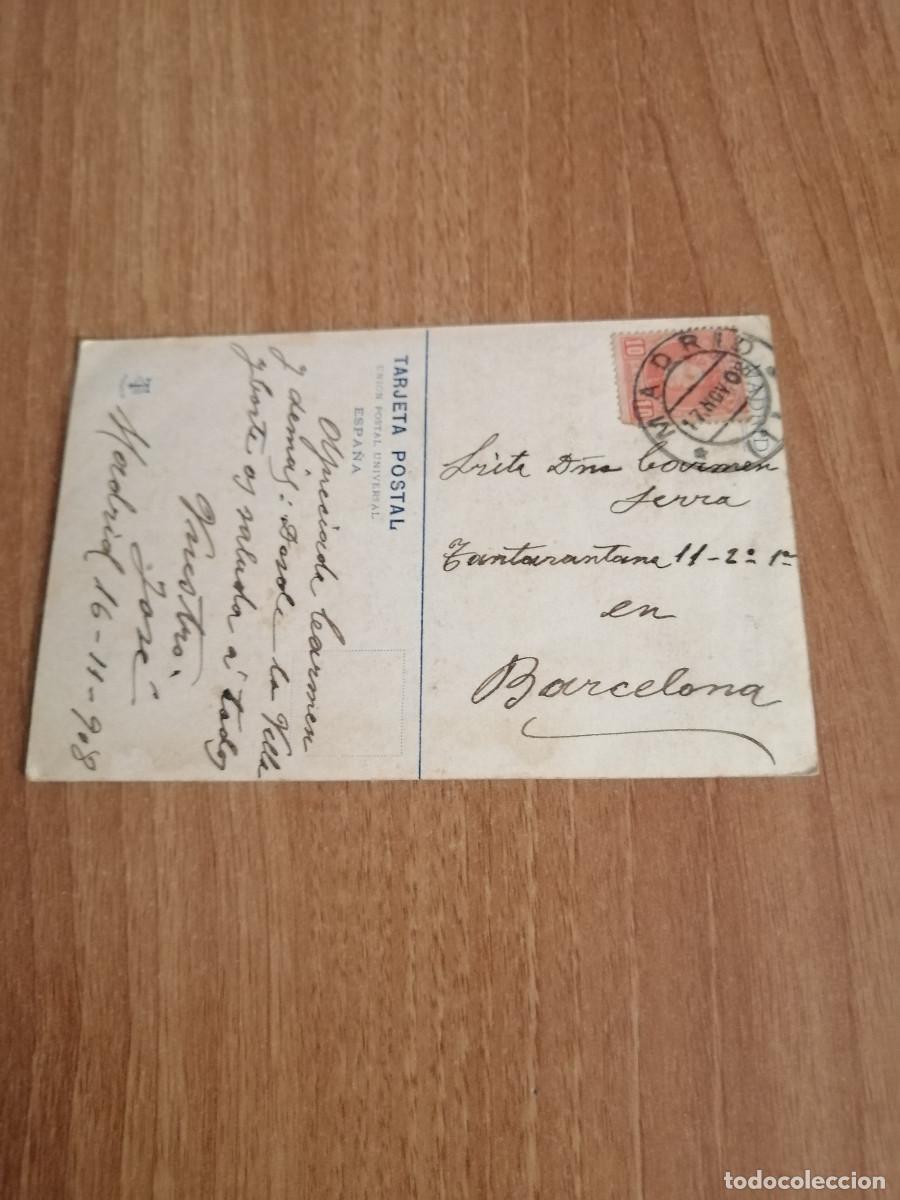 TARJETA POSTAL
UNION POSTAL UNIVERSAL
ESPAÑA
Apreciada Carmen
y demas: Desde la Villa
y Corte os saluda á todos
Vuestro,
José
Madrid 16-11-908
10 10
MADRID
17.NOV 08
MADRID
Srita Dña Carmen
Serra
Tantarantana 11-2º 1ª
en
Barcelona
todocoleccion